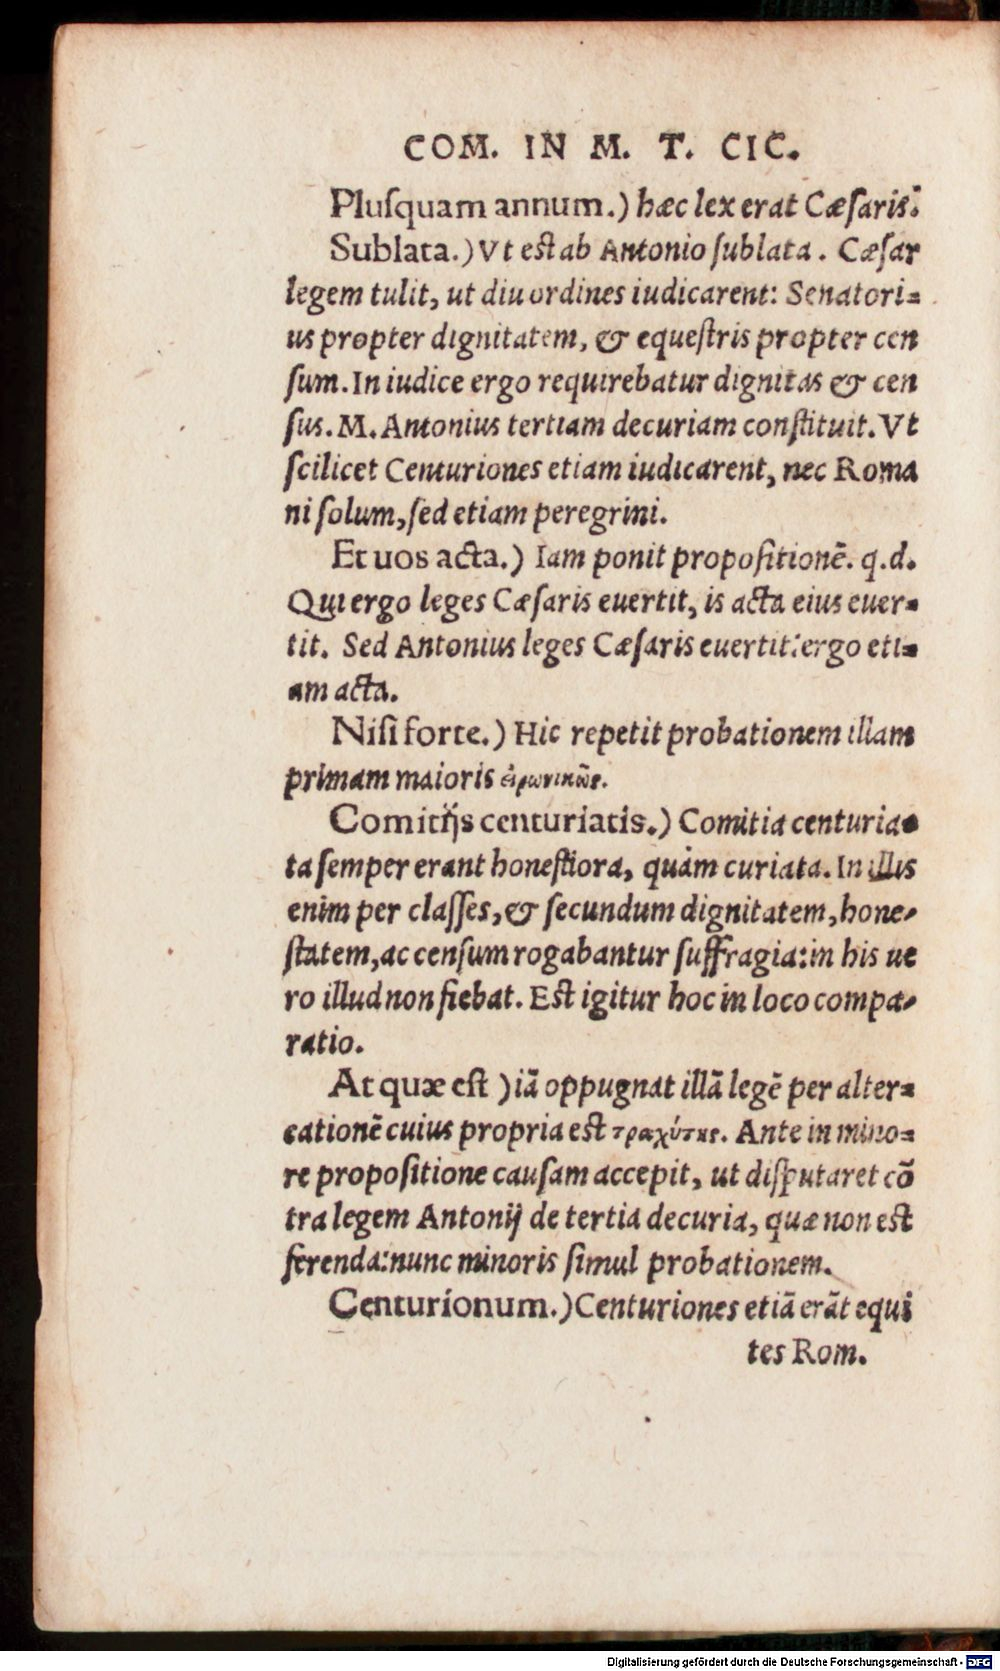 COM. IN M. T. CIC.
Pluſquam annum.) hæc lex erat Cæſaris.
Sublata.) Vt est ab Antonio ſublata. Cæſar
legem tulit, ut diu ordines iudicarent: Senatori=
us propter dignitatem, & equeſtris propter cen
ſum. In iudice ergo requirebatur dignitas & cen
ſus. M. Antonius tertiam decuriam conſtituit. Vt
ſcilicet Centuriones etiam iudicarent, nec Roma
ni ſolum, ſed etiam peregrini.
Et uos acta.) Iam ponit propoſitionē. q.d.
Qui ergo leges Cæſaris euertit, is acta eius euer=
tit. Sed Antonius leges Cæſaris euertit: ergo eti=
am acta.
Niſi forte.) Hic repetit probationem illam
primam maioris εἰρωνικῶς.
Comitijs centuriatis.) Comitia centuria=
ta ſemper erant honeſtiora, quàm curiata. In illis
enim per claſſes, & ſecundum dignitatem, hone=
ſtatem, ac cenſum rogabantur ſuffragia: in his ue
ro illud non fiebat. Est igitur hoc in loco compa=
ratio.
At quæ eſt ) iā oppugnat illā legē per alter=
cationē cuius propria est τραχύτης. Ante in mino=
re propoſitione cauſam accepit, ut diſputaret cō
tra legem Antonij de tertia decuria, quæ non est
ferenda: nunc minoris ſimul probationem.
Centurionum.) Centuriones etiā erāt equi
tes Rom.
Digitalisierung gefördert durch die Deutsche Forschungsgemeinschaft - DFG